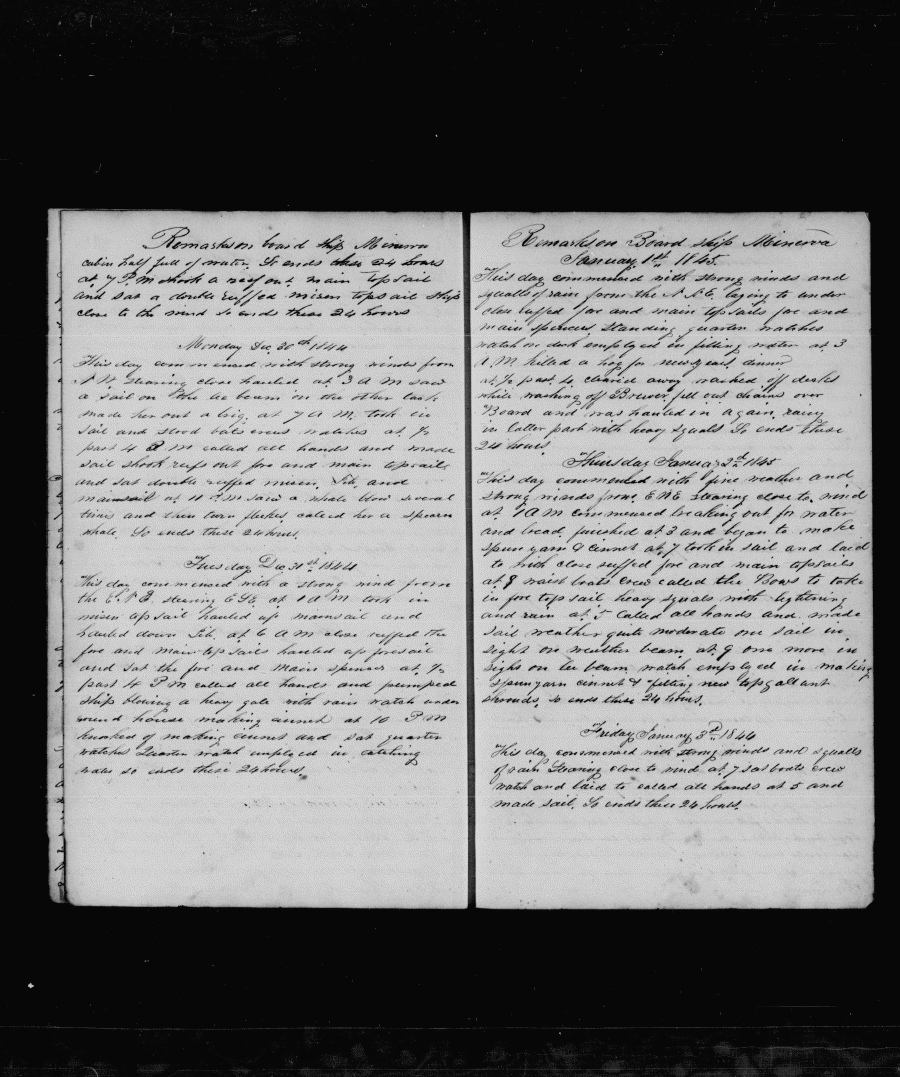 Remarks on board ship Minerva
cabin half full of water. So ends these 24 hours
at 7 P.M. shook a reef out main Topsail
and sat a double reffed misen topsail ship
close to the wind So ends these 24 hours
Monday Dec 30th 1844
This day commenced with strong winds from
N.W. stearing close hauled at 3 A M saw
a sail on the lee beam on the other tack
made her out a brig, at 7 A M. took in
sail and stood boats crews watches at ½
past 4 P M called all hands and made
sail shook refs out fore and main topsails
and sat double reffed misen. Jib, and
mainsail at 11 A M saw a whale blow several
times and then turn flukes called her a sperm
whale. So ends these 24 hours.
Tuesday Dec 31st 1844
This day commenced with a strong wind from
the E N E stearing E S E at 1 A M took in
misen topsail hauled up mainsail and
hauled down Jib at 6 A M close reffed the
fore and main topsails hauled up foresail
and sat the fore and main spencer at ½
past 4 P M called all hands and pumped
ship blowing a heavy gale with rain watch under
round house making cinnet at 10 P M
knocked of making cinnet and sat quarter
watches Quarter watch employed in catching
water so ends these 24 hours.
Remarks on Board ship Minerva
January 1st 1845
This day commenced with strong winds and
squalls of rain from the N N E. laying to under
close reffed fore and main topsails fore and
main spencers, standing quarter watches
watch on deck employed in filling water at 3
A.M. killed a hog for newyears dinner
at ½ past 4 cleared away washed off decks
while washing off Brewer fell out chains over
Board and was hauled in again, rainy
in latter part with heavy squals So ends these
24 hours.
Thursday January 2nd 1845
This day commenced with fine weather and
strong winds from. E N E stearing close to wind
at 1 A M commenced breaking out for water
and bread, finished at 3 and began to make
spunyarn & cinnet at 7 took in sail and laid
to with close reffed fore and main topsails
at 8 waist boats crew called the Bows to take
in fore topsail heavy squals with lightening
and rain at 5 called all hands and made
sail weather quite moderate one sail in
sight on weather beam at 9 one more in
sight on lee beam watch employed in making
spunyarn cinnet & fitting new topgallant
shrouds, so ends these 24 hours.
Friday January 3d 1844
This day commenced with strong winds and squalls
of rain stearing close to wind at 7 sat boats crew
watch and laid to called all hands at 5 and
made sail. So ends these 24 hours.